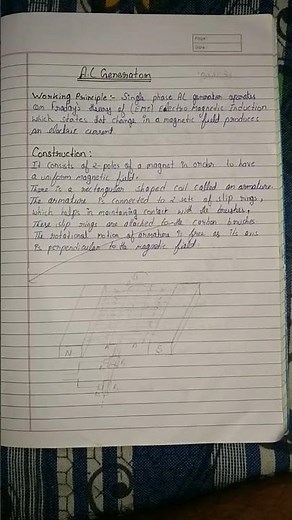 Page :
Date :
A.C Generator
Working Principle :- Single phase AC generator operates
on Fraday's theory of (EMI) Electro Magnetic Induction
which states dat change in a magnetic field produces
an electric current.
Construction :
It consets of 2-poles of a magnet in order to have
a uniform magnetic field.
There is a rectangular shaped coil called an armature.
The armature is connected to 2 sets of slip rings,
which helps in maintaning contact with the brushes,
These slip rings are attached to the carbon brushes.
The rotational motion of armature is free as its axis
is perpendicular to the magnetic field.
N S